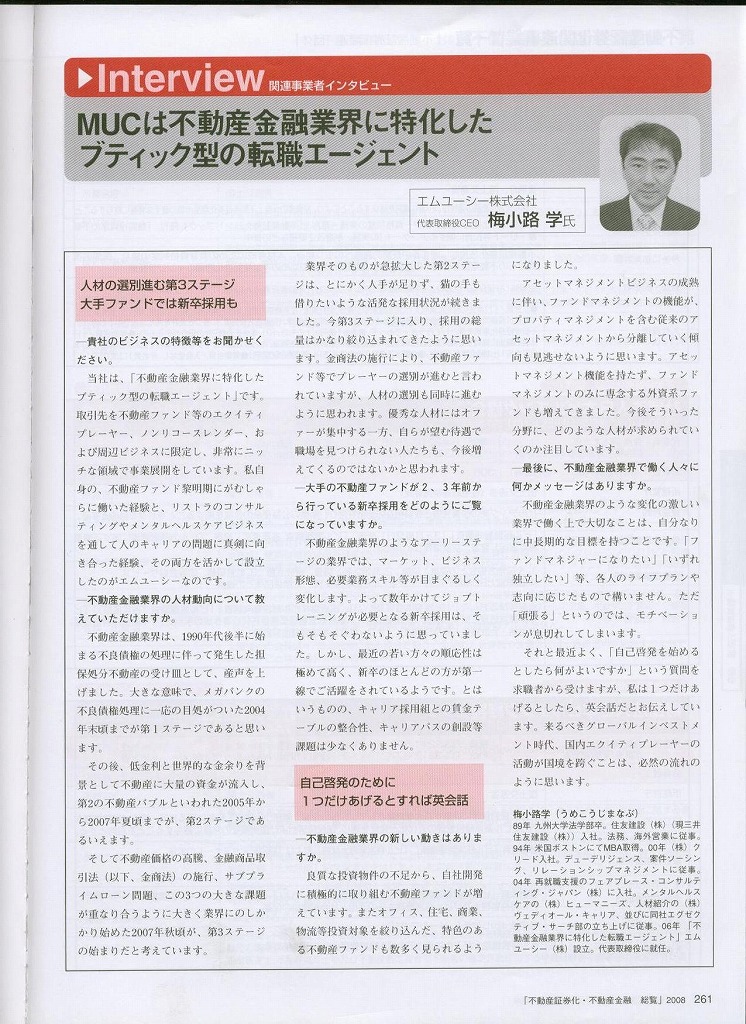 Interview 関連事業者インタビュー
MUCは不動産金融業界に特化した
ブティック型の転職エージェント
エムユーシー株式会社
代表取締役CEO 梅小路 学氏
人材の選別進む第3ステージ
大手ファンドでは新卒採用も
―貴社のビジネスの特徴等をお聞かせく
ださい。
当社は、「不動産金融業界に特化した
ブティック型の転職エージェント」です。
取引先を不動産ファンド等のエクイティ
プレーヤー、ノンリコースレンダー、お
よび周辺ビジネスに限定し、非常にニッ
チな領域で事業展開をしています。私自
身の、不動産ファンド黎明期にがむしゃ
らに働いた経験と、リストラのコンサル
ティングやメンタルヘルスケアビジネス
を通して人のキャリアの問題に真剣に向
き合った経験、その両方を活かして設立
したのがエムユーシーなのです。
―不動産金融業界の人材動向について教
えていただけますか。
不動産金融業界は、1990年代後半に始
まる不良債権の処理に伴って発生した担
保処分不動産の受け皿として、産声を上
げました。大きな意味で、メガバンクの
不良債権処理に一応の目処がついた2004
年末頃までが第1ステージであると思い
ます。
その後、低金利と世界的な金余りを背
景として不動産に大量の資金が流入し、
第2の不動産バブルといわれた2005年か
ら2007年夏頃までが、第2ステージであ
るいえます。
そして不動産価格の高騰、金融商品取
引法（以下、金商法）の施行、サブプラ
イムローン問題、この3つの大きな課題
が重なり合うように大きく業界にのしか
かり始めた2007年秋頃が、第3ステージ
の始まりだと考えています。
業界そのものが急拡大した第2ステー
ジは、とにかく人手が足りず、猫の手も
借りたいような活発な採用状況が続きま
した。今第3ステージに入り、採用の総
量はかなり絞り込まれてきたように思い
ます。金商法の施行により、不動産ファ
ンド等でプレーヤーの選別が進むと言わ
れていますが、人材の選別も同時に進む
ように思われます。優秀な人材にはオフ
ァーが集中する一方、自らが望む待遇で
職場を見つけられない人たちも、今後増
えてくるのではないかと思われます。
―大手の不動産ファンドが２、３年前か
ら行っている新卒採用をどのようにご覧
になっていますか。
不動産金融業界のようなアーリーステ
ージの業界では、マーケット、ビジネス
形態、必要業務スキル等が目まぐるしく
変化します。よって数年かけてジョブト
レーニングが必要となる新卒採用は、そ
もそもそぐわないように思っていまし
た。しかし、最近の若い方々の順応性は
極めて高く、新卒のほとんどの方が第一
線でご活躍をされているようです。とは
いうものの、キャリア採用組との賃金テ
ーブルの整合性、キャリアパスの創設等
課題は少なくありません。
自己啓発のために
１つだけあげるとすれば英会話
―不動産金融業界の新しい動きはありま
すか。
良質な投資物件の不足から、自社開発
に積極的に取り組む不動産ファンドが増
えています。またオフィス、住宅、商業、
物流等投資対象を絞り込んだ、特色のあ
る不動産ファンドも数多く見られるよう
になりました。
アセットマネジメントビジネスの成熟
に伴い、ファンドマネジメントの機能が、
プロパティマネジメントを含む従来のア
セットマネジメントから分離していく傾
向も見逃せないように思います。アセッ
トマネジメント機能を持たず、ファンド
マネジメントのみに専念する外資系ファ
ンドも増えてきました。今後そういった
分野に、どのような人材が求められてい
くのか注目しています。
―最後に、不動産金融業界で働く人々に
何かメッセージはありますか。
不動産金融業界のような変化の激しい
業界で働く上で大切なことは、自分なり
に中長期的な目標を持つことです。「フ
ァンドマネジャーになりたい」「いずれ
独立したい」等、各人のライフプランや
志向に応じたもので構いません。ただ
「頑張る」というのでは、モチベーショ
ンが息切れしてしまいます。
それと最近よく、「自己啓発を始める
としたら何がよいですか」という質問を
求職者から受けますが、私は１つだけあ
げるとしたら、英会話だとお伝えしてい
ます。来るべきグローバルインベストメ
ント時代、国内エクイティプレーヤーの
活動が国境を跨ぐことは、必然の流れの
ように思います。
梅小路学（うめこうじまなぶ）
89年 九州大学法学部卒。住友建設（株）（現三井
住友建設（株））入社。法務、海外営業に従事。
94年 米国ボストンにてMBA取得。00年（株）ク
リード入社。デューデリジェンス、案件ソーシン
グ、リレーションシップマネジメントに従事。
04年 再就職支援のフェアプレース・コンサルテ
ィング・ジャパン（株）に入社。メンタルヘルス
ケアの（株）ヒューマニーズ、人材紹介の（株）
ヴェディオール・キャリア、並びに同社エグゼク
ティブ・サーチ部の立ち上げに従事。06年 「不
動産金融業界に特化した転職エージェント」エム
ユーシー（株）設立。代表取締役に就任。
「不動産証券化・不動産金融 総覧」2008 261